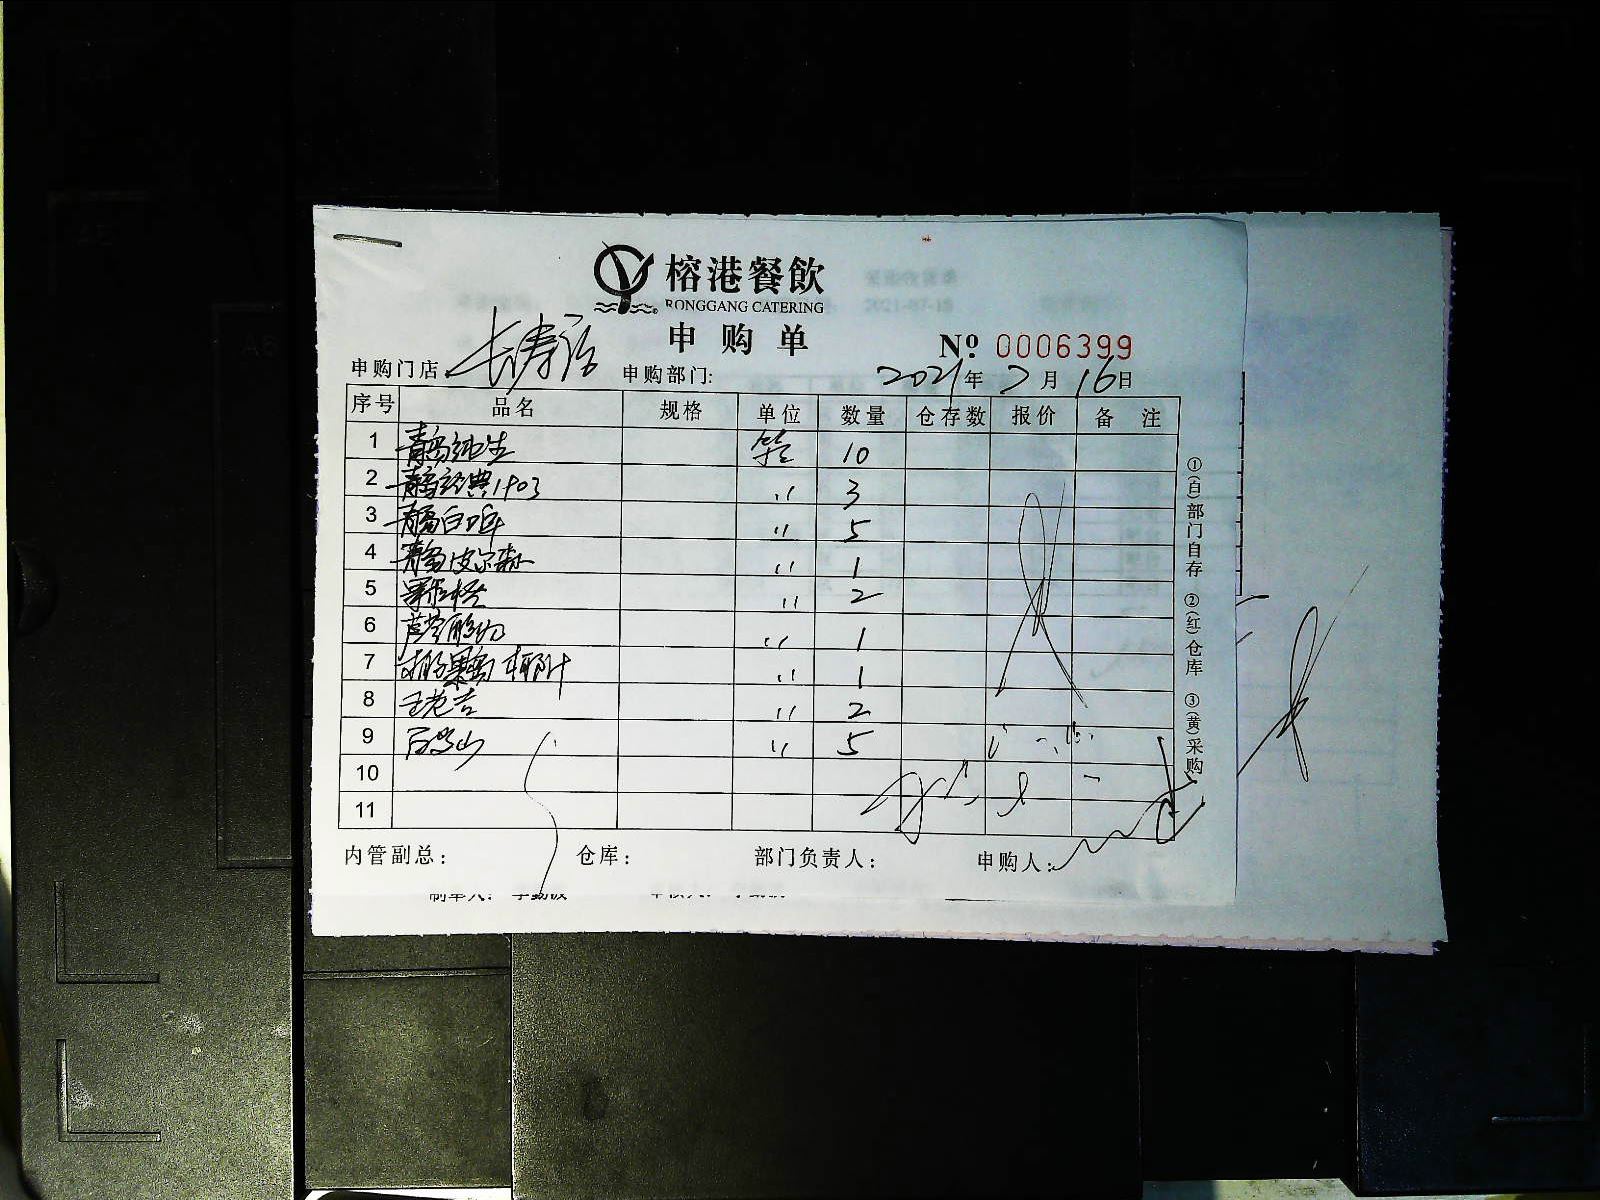 榕港餐飲
RONGGANG CATERING
申购单
Nº 0006399
申购门店 长寿路 申购部门: 2021年7月16日
序号 品名 规格 单位 数量 仓存数 报价 备注
1 青岛纯生 箱 10
2 青岛经典1903 〃 3
3 青岛白啤 〃 5
4 青岛皮尔森 〃 1
5 〃 2
6 〃 1
7 果园椰汁 〃 1
8 王老吉 〃 2
9 百岁山 〃 5
10
11
内管副总: 仓库: 部门负责人: 申购人:
①(白)部门自存 ②(红)仓库 ③(黄)采购
2021-07-18